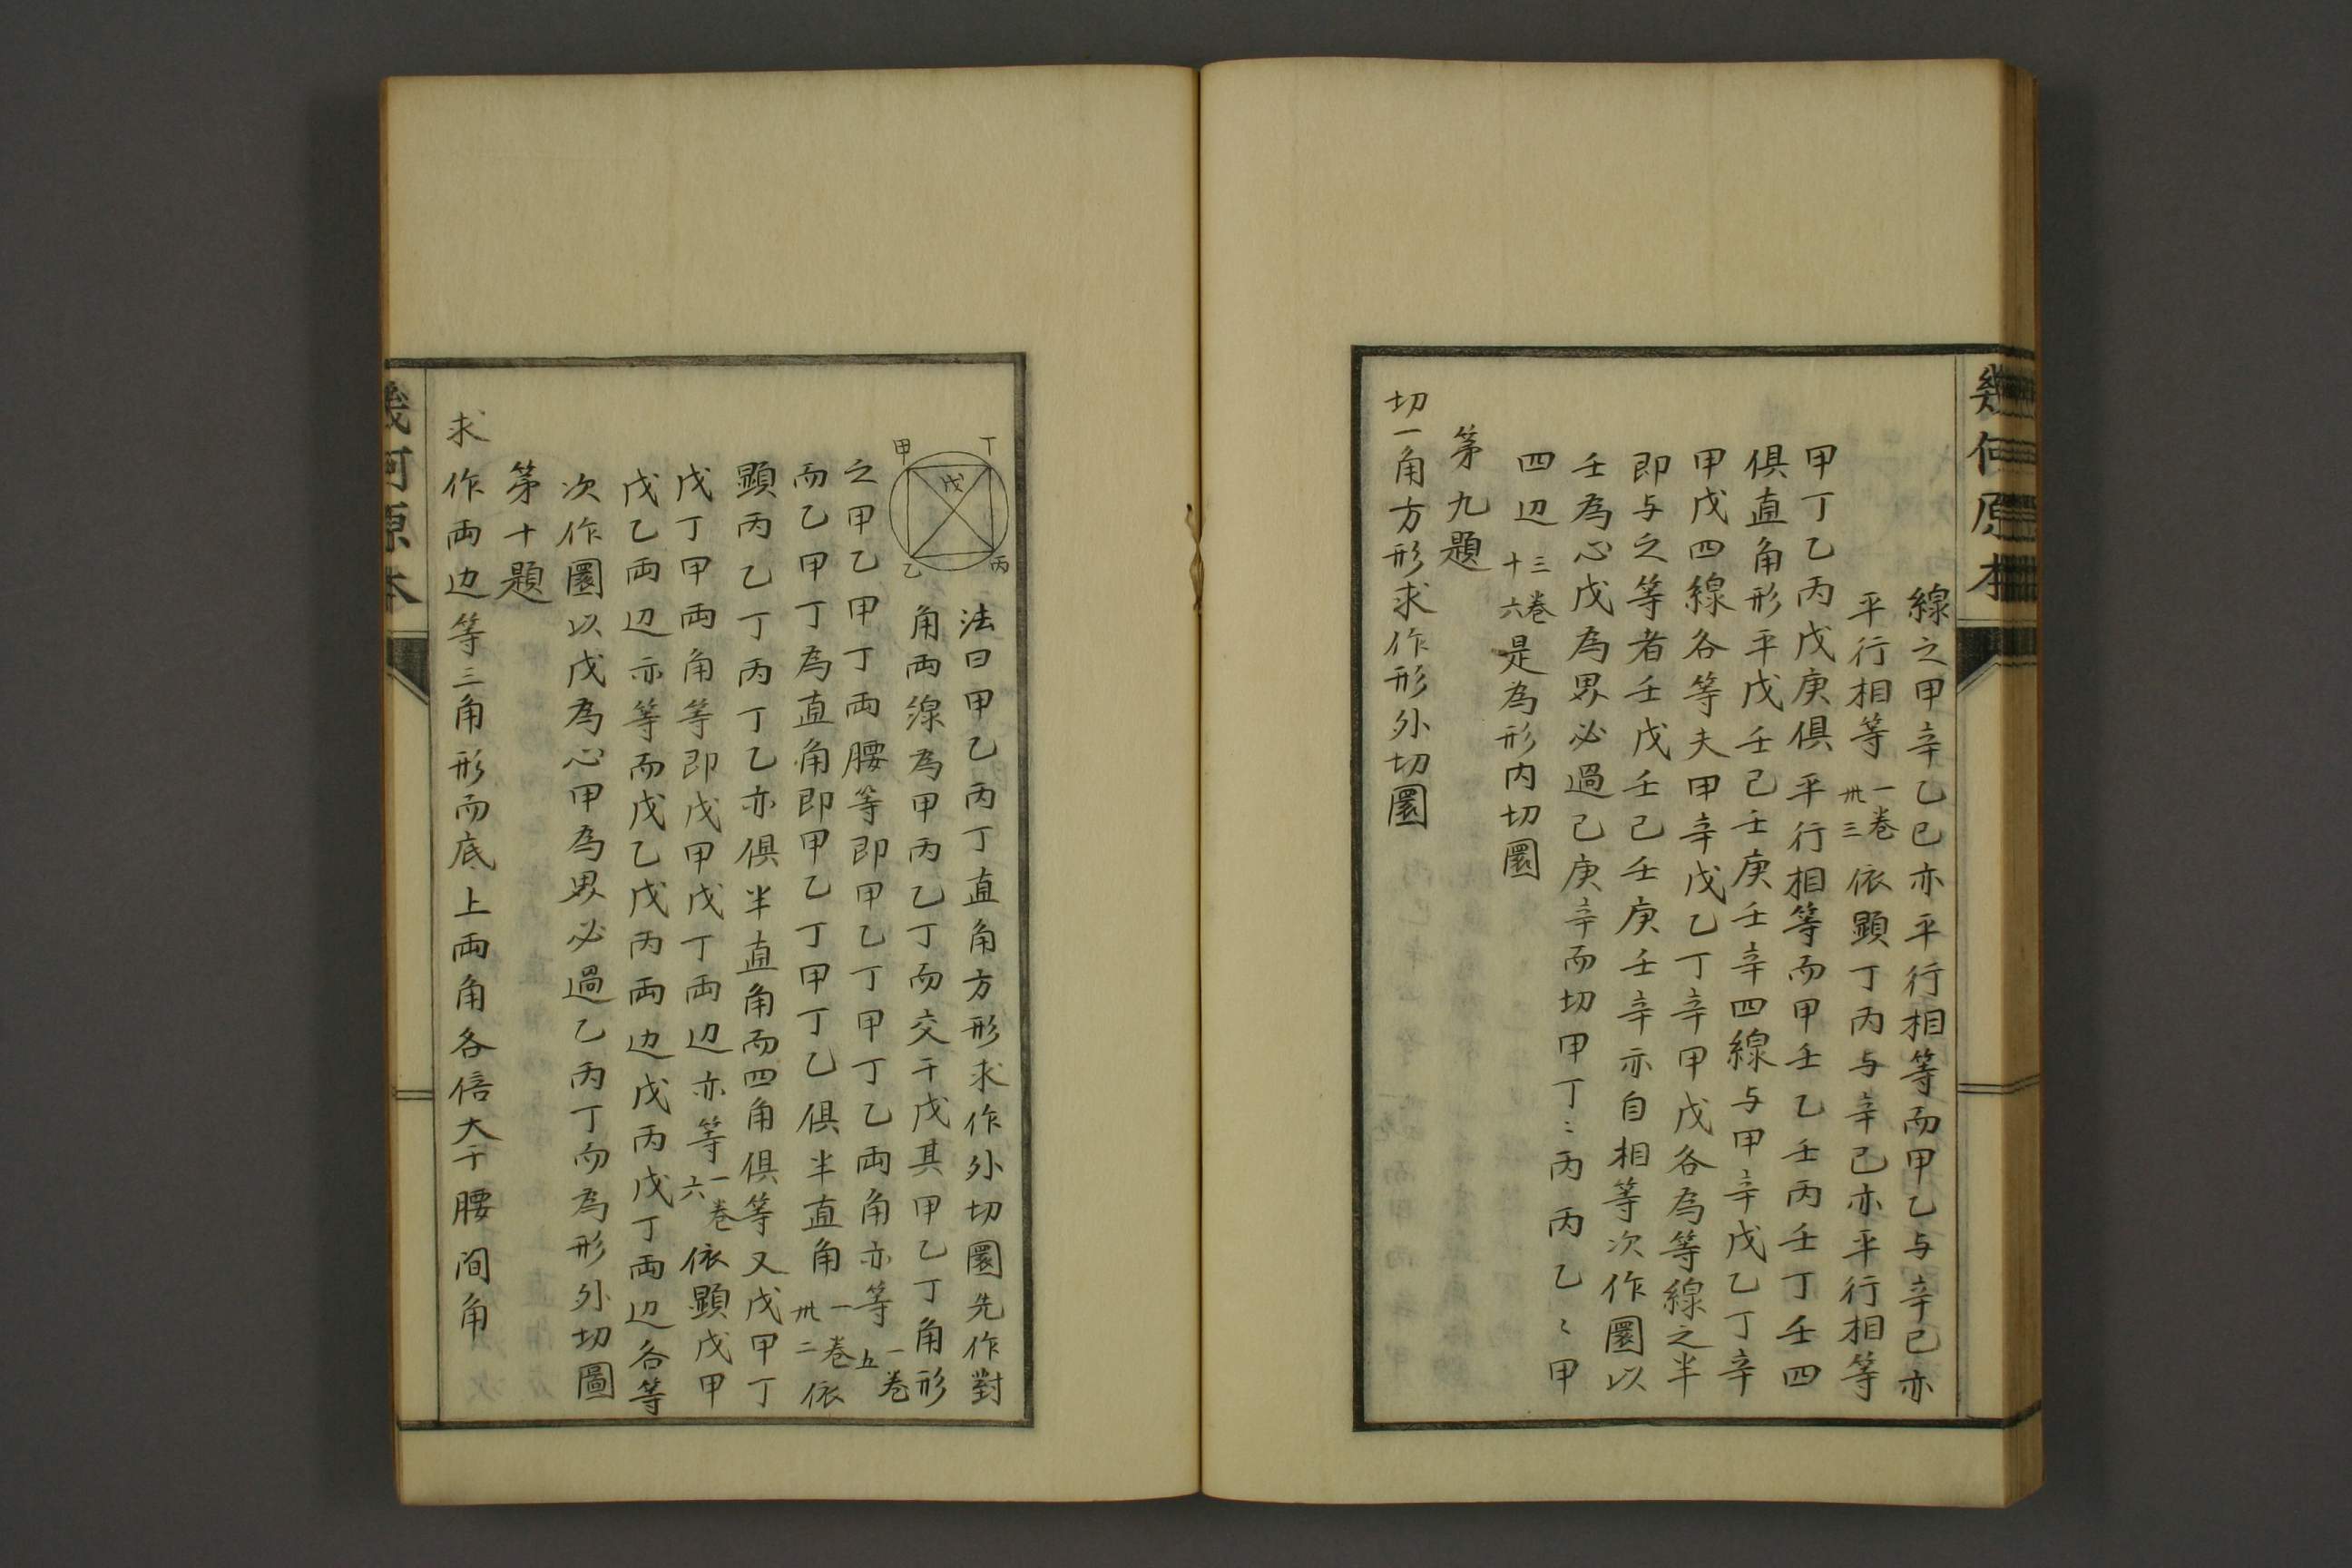 幾何原本
線之甲辛乙己亦平行相等而甲乙与辛己亦
平行相等一卷卅三依顯丁丙与辛己亦平行相等
甲丁乙丙戊庚俱平行相等而甲壬乙壬丙壬丁壬四
俱直角形平戊壬己壬庚壬辛四線与甲辛戊乙丁辛
甲戊四線各等夫甲辛戊乙丁辛甲戊各為等線之半
即与之等者壬戊壬己壬庚壬辛亦自相等次作圜以
壬為心戊為界必過己庚辛而切甲丁〻丙丙乙〻甲
四辺三卷十六是為形内切圜
第九題
切一角方形求作形外切圜
甲
丁
戊
乙
丙
法曰甲乙丙丁直角方形求作外切圜先作對
角両線為甲丙乙丁而交于戊其甲乙丁角形
之甲乙甲丁両腰等即甲乙丁甲丁乙両角亦等一卷五
而乙甲丁為直角即甲乙丁甲丁乙俱半直角一卷卅二依
顯丙乙丁丙丁乙亦俱半直角而四角俱等又戊甲丁
戊丁甲両角等即戊甲戊丁両辺亦等一卷六依顯戊甲
戊乙両辺亦等而戊乙戊丙両边戊丙戊丁両辺各等
次作圜以戊為心甲為界必過乙丙丁而為形外切圖
第十題
求作両边等三角形而底上両角各倍大于腰间角
幾何原本